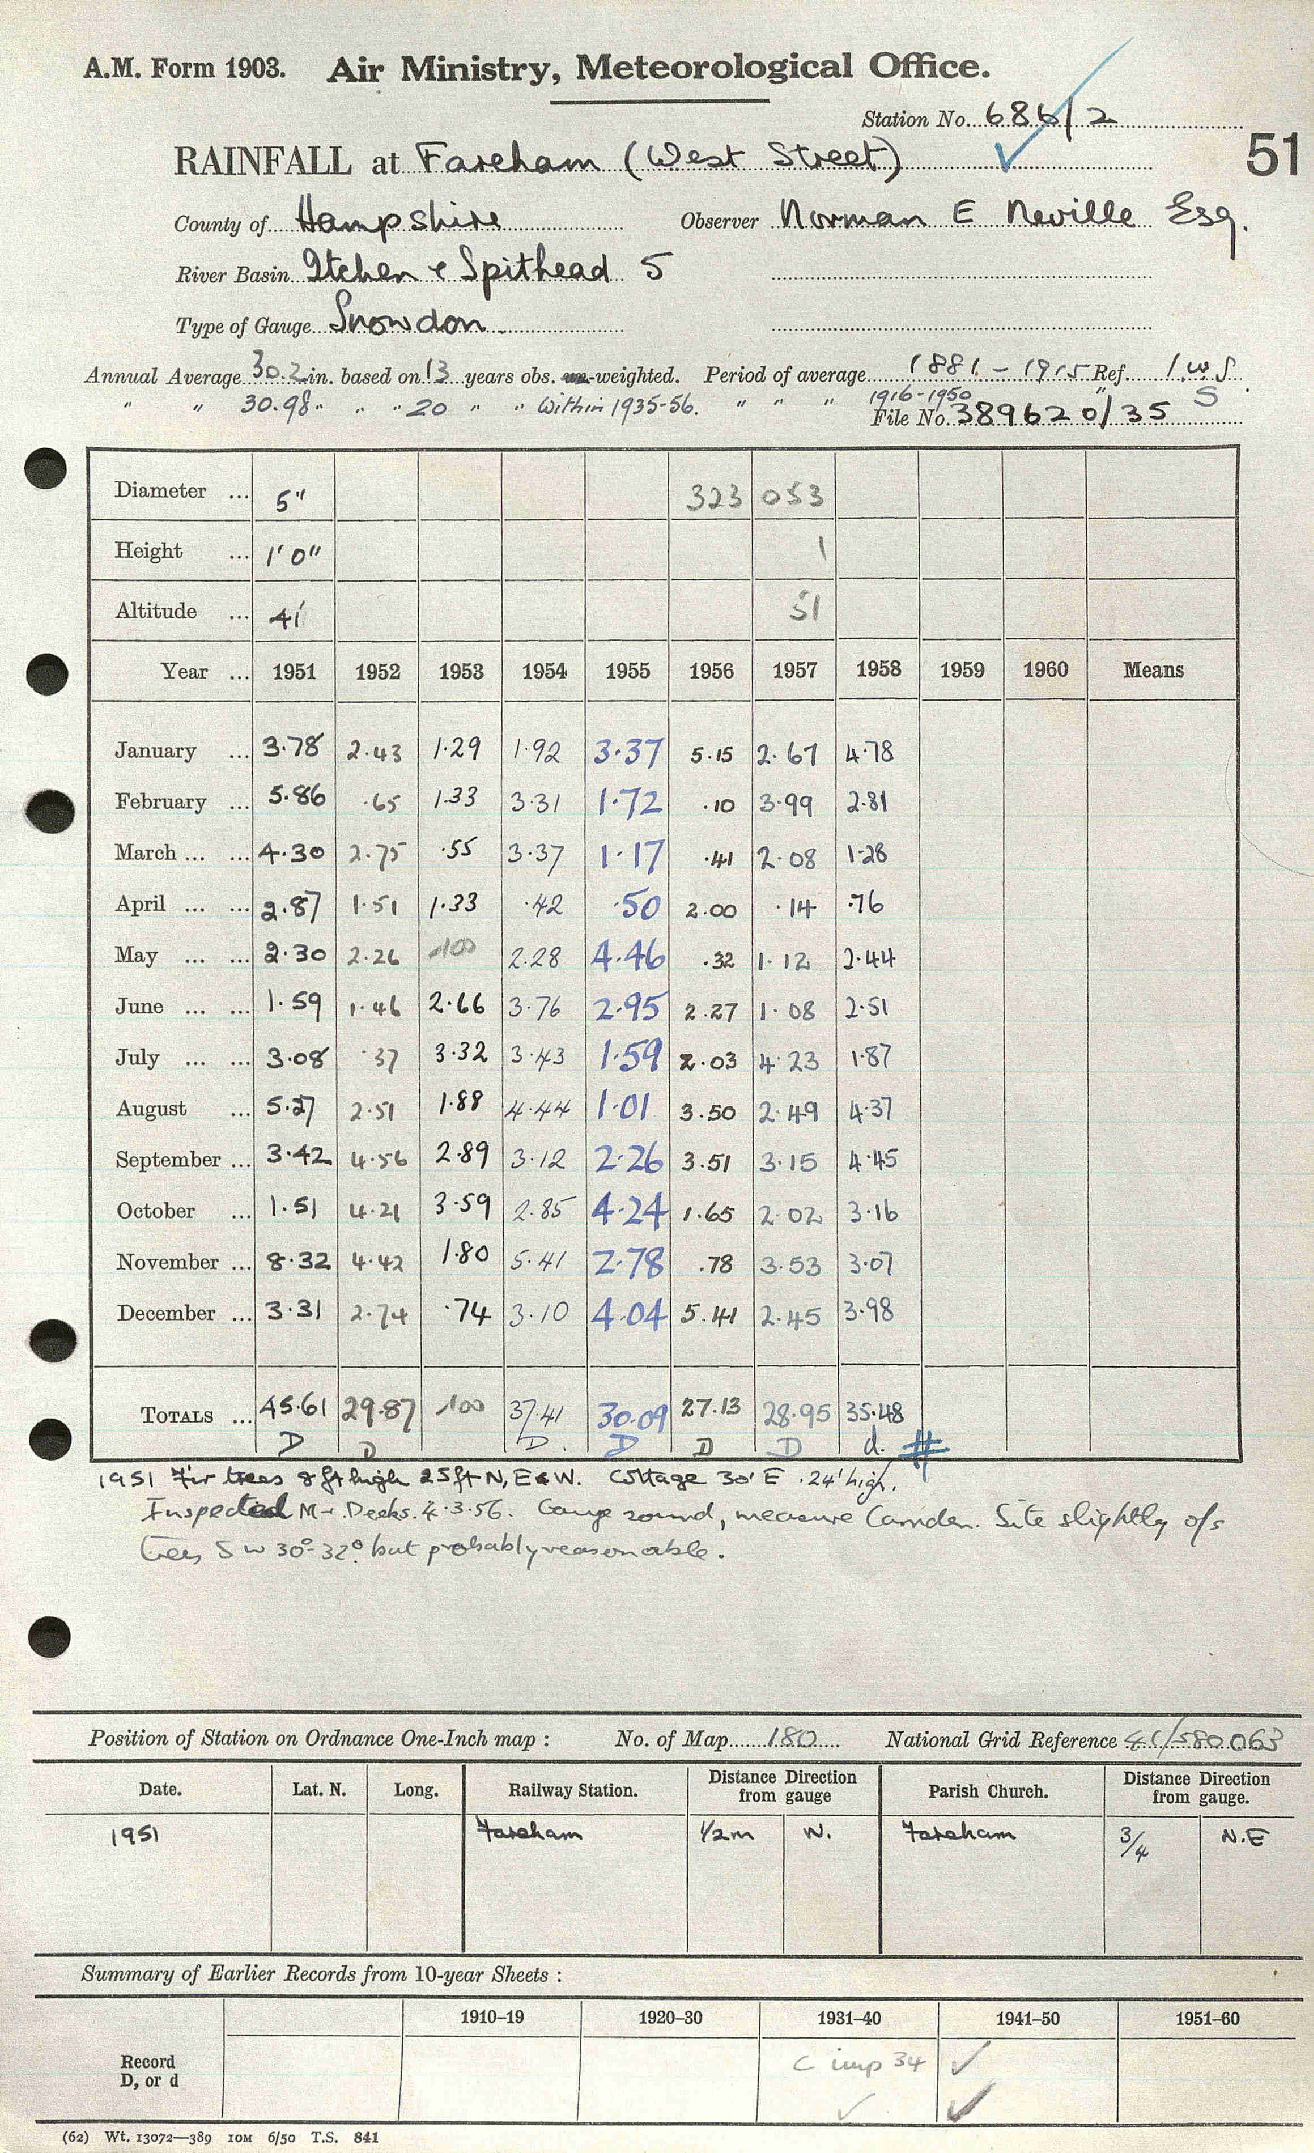 A.M. Form 1903. Air Ministry, Meteorological Office.
Station No. 686/2
RAINFALL at Fareham (West Street)
51
County of Hampshire Observer Norman E Neville Esq.
River Basin Itchen & Spithead 5
Type of Gauge Snowdon
Annual Average 30.2 in. based on 13 years obs. un-weighted. Period of average 1881 - 1915 Ref. I.W.S.
" " 30.98 " " " 20 " " Within 1935-56. " " " 1916-1950 " S
File No. 389620/35
Diameter ... 5" 323 053
Height ... 1' 0" 1
Altitude ... 41' 51
Year ... 1951 1952 1953 1954 1955 1956 1957 1958 1959 1960 Means
January ... 3.78 2.43 1.29 1.92 3.37 5.15 2.67 4.78
February ... 5.86 .65 1.33 3.31 1.72 .10 3.99 2.81
March ... ... 4.30 2.75 .55 3.37 1.17 .41 2.08 1.28
April ... ... 2.87 1.51 1.33 .42 .50 2.00 .14 .76
May ... ... 2.30 2.26 2.28 4.46 .32 1.12 2.44
June ... ... 1.59 1.46 2.66 3.76 2.95 2.27 1.08 2.51
July ... ... 3.08 .37 3.32 3.43 1.59 2.03 4.23 1.87
August ... 5.27 2.51 1.88 4.44 1.01 3.50 2.49 4.37
September ... 3.42 4.56 2.89 3.12 2.26 3.51 3.15 4.45
October ... 1.51 4.21 3.59 2.85 4.24 1.65 2.02 3.16
November ... 8.32 4.42 1.80 5.41 2.78 .78 3.53 3.07
December ... 3.31 2.74 .74 3.10 4.04 5.41 2.45 3.98
TOTALS ... 45.61 29.87 37.41 30.09 27.13 28.95 35.48
D D D. D D D d. #
1951 Fir trees 8 ft high 25 ft N, E & W. Cottage 30' E. 24' high.
Inspected Mr. Deeks. 4.3.56. Gauge sound, measure Camden. Site slightly o/s
trees SW 30°-32° but probably reasonable.
Position of Station on Ordnance One-Inch map : No. of Map 180 National Grid Reference 41/580063
Date. Lat. N. Long. Railway Station. Distance Direction from gauge Parish Church. Distance Direction from gauge.
1951 Fareham 1/2 m W. Fareham 3/4 N.E
Summary of Earlier Records from 10-year Sheets :
1910-19 1920-30 1931-40 1941-50 1951-60
Record
D, or d
C imp 34 ✓
✓ ✓
(62) Wt. 13072—389 10M 6/50 T.S. 841